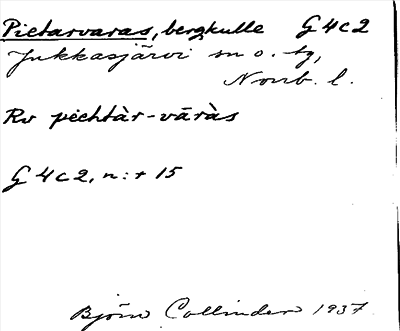 Pietarvaras, bergkulle G4c2
Jukkasjärvi sn o. tg,
Norrb. l.
Rv pėchtàr-vāràs
G4c2, n:r 15
Björn Collinder 1937